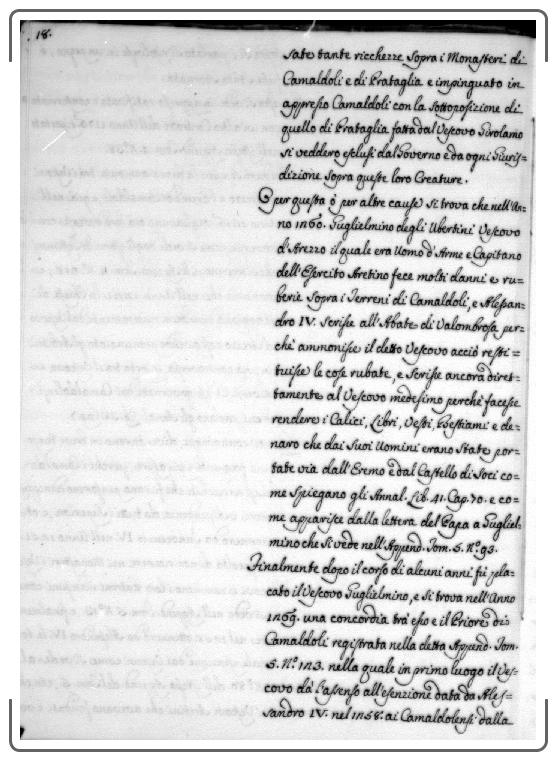 18.
sate tante ricchezze sopra i Monasteri di
Camaldoli e di Prataglia e impinguato in
appresso Camaldoli con la sottoposizione di
quello di Prataglia fatta dal Vescovo Girolamo
si veddero esclusi dal Governo e da ogni Giuris=
dizione sopra queste loro Creature.
O per questa ò per altre cause si trova che nell'An=
no 1260. Guglielmino degli Ubertini Vescovo
d'Arezzo il quale era Uomo d'Arme e Capitano
dell'Esercito Aretino fece molti danni e ru=
berie sopra i Terreni di Camaldoli, e Alessan=
dro IV. scrisse all'Abate di Valombrosa per=
chè ammonisse il detto Vescovo acciò resti=
tuisse le cose rubate, e scrisse ancora diret=
tamente al Vescovo medesimo perchè facesse
rendere i Calici, Libri, Vesti, Bestiami e de=
naro che dai suoi Uomini erano state por=
tate via dall'Eremo e dal Castello di Soci co=
me spiegano gli Annal. Lib. 41. Cap. 70. e co=
me apparisce dalla lettera del Papa a Gugliel=
mino che si vede nell'Append. Tom. 5. N.° 93.
Finalmente dopo il corso di alcuni anni fù pla=
cato il Vescovo Guglielmino, e si trova nell'Anno
1269. una concordia trà esso e il Priore di
Camaldoli registrata nella detta Append. Tom.
5. N.° 113. nella quale in primo luogo il Ves=
covo dà l'assenso all'esenzione data da Ales=
sandro IV. nel 1258. ai Camaldolensi dalla